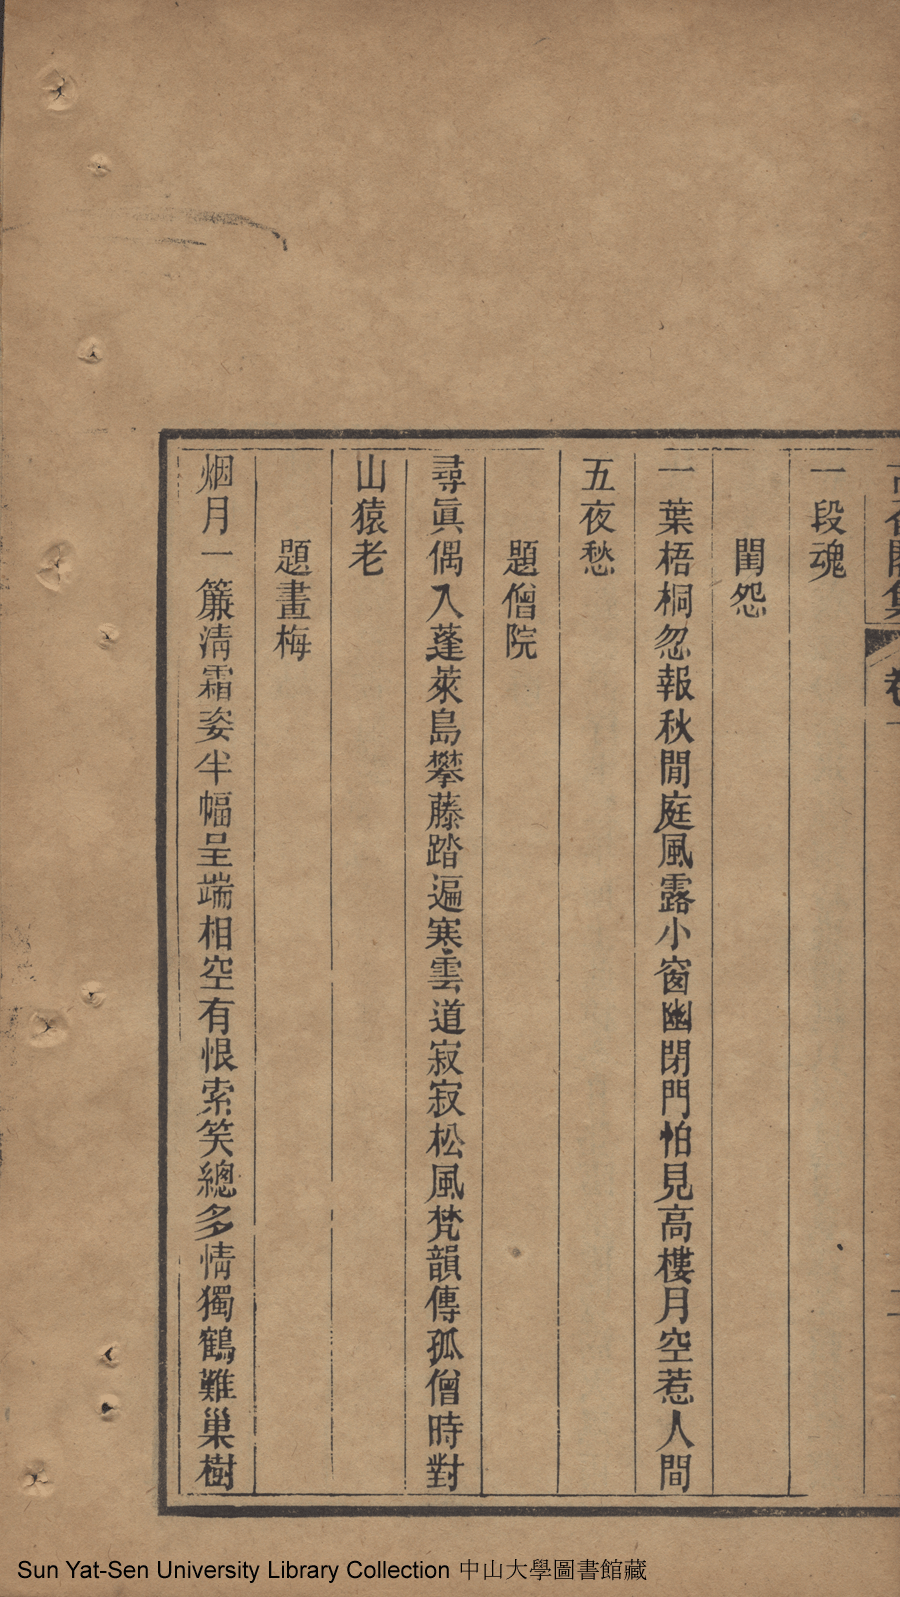 一段魂
閨怨
一葉梧桐忽報秋閒庭風露小窗幽閉門怕見高樓月空惹人間
五夜愁
題僧院
尋眞偶入蓬萊島攀藤踏遍寒雲道寂寂松風梵韻傳孤僧時對
山猿老
題畫梅
烟月一簾淸霜姿半幅呈端相空有恨索笑總多情獨鶴難巢樹
Sun Yat-Sen University Library Collection 中山大學圖書館藏